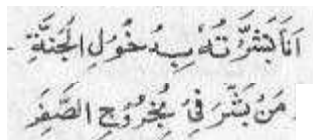 اَنَا بَشَّرْتُهٗ بِدُخُوْلِ الْجَنَّةِ -
مَنْ بَشَّرَنِیْ بِخُرُوْجِ الصَّفَرِ